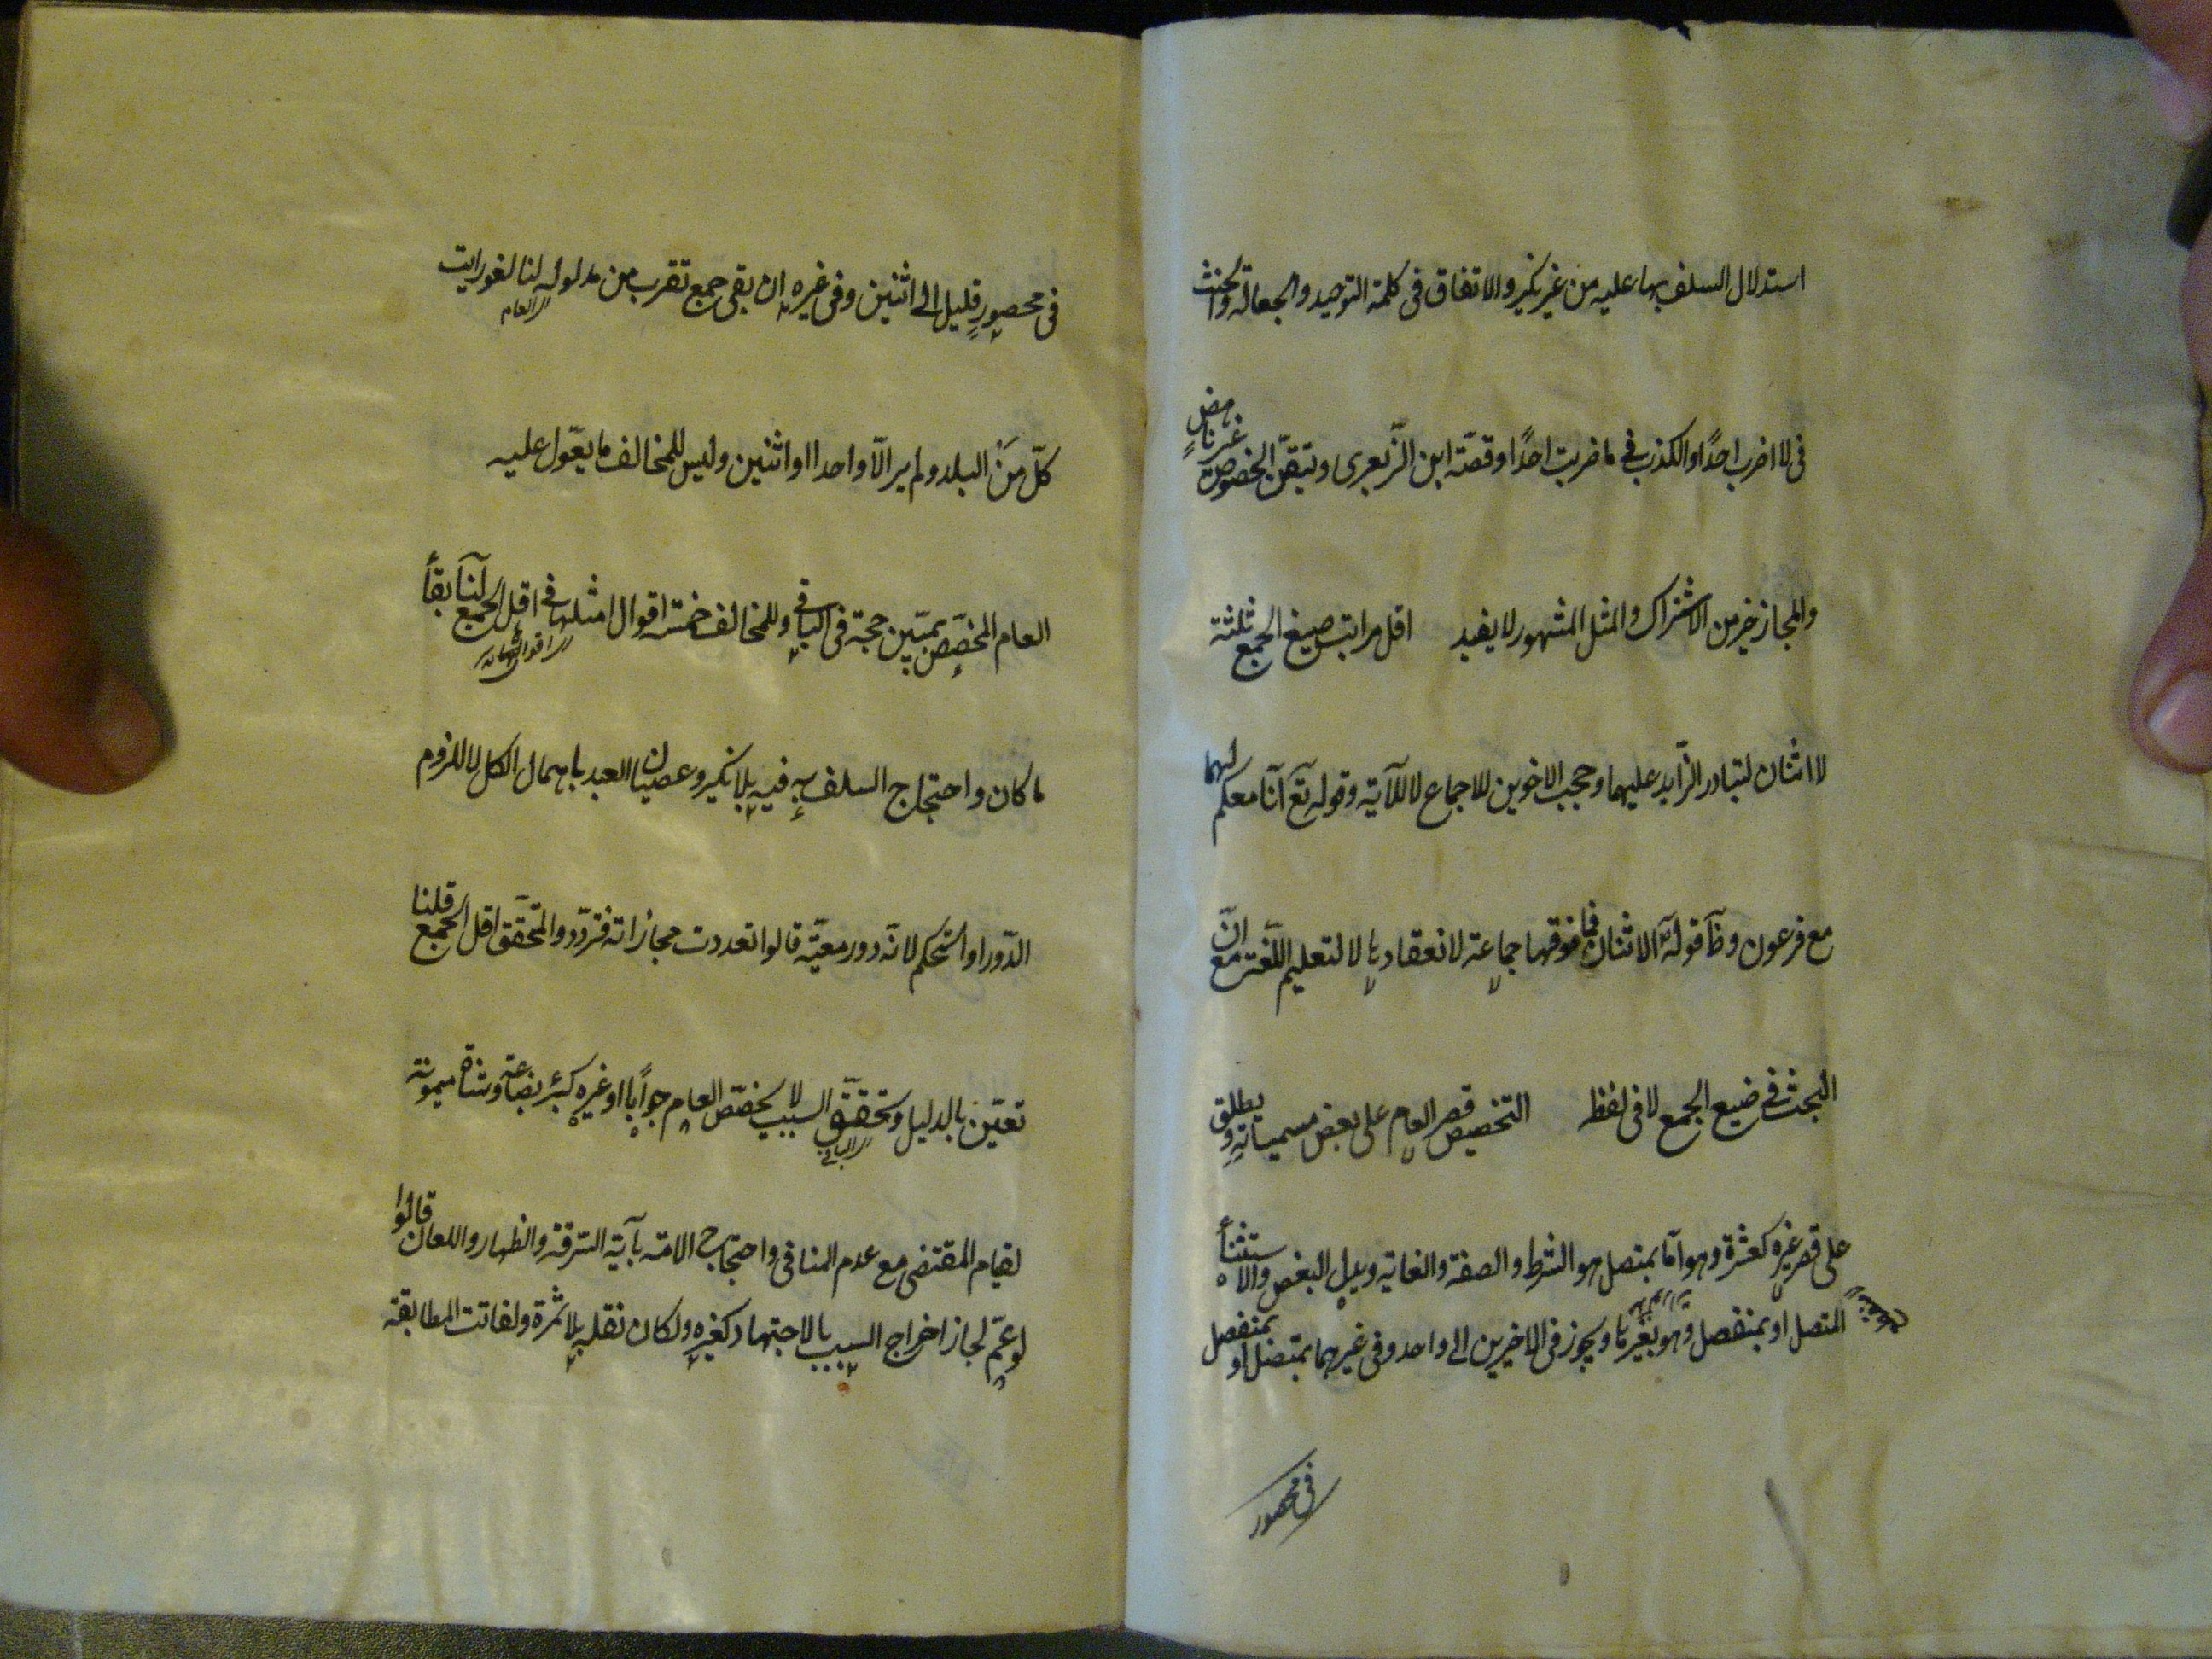 استدلال السلف بها عليه من غير نكير والاتفاق فى كلمة التوحيد والجعالة والحنث
فى لا اضرب احدًا والكذب فى ما ضربت احدًا وقصّة ابن الزّبعرى وتيقّن الخصوصيّة غير ناهضٍ
والمجاز خير من الاشتراك والمثل المشهور لا يفيد اقل مراتب صيغ الجمع ثلثة
لا اثنان لتبادر الزّايد عليهما وحجب الاخوين للاجماع لا للآية وقوله تع انّا معكم لهما
مع فرعون وظ قوله الاثنان فما فوقهما جماعة لانعقادها لا لتعليم اللّغة مع انّ
البحث فى صيغ الجمع لا فى لفظه التخصيص قصر العام على بعض مسمياته ويطلق
على قصر غيره كعشرة وهو امّا بمتصل هو الشرط والصفة والغاية وبدل البعض والاستثناء
المتصل او بمنفصل وهو بغيرها ويجوز فى الاخيرين الى واحد وفى غيرهما بمتصل او بمنفصل
فى محصور
فى محصورٍ قليل الى اثنين وفى غيره ان بقى جمع تقرب من مدلوله لنا لغو رايت
العام
كلّ مَنْ البلد ولم ير الّا واحدا او اثنين وليس للمخالف ما يعّول عليه
العام المخصّص بمبيّن حجة فى الباقى وللمخالف خمسة اقوال امثلها فى اقل الجمع لنا بقاء
ما كان واحتجاج السلف به فيه بلا نكير وعصيان العبد باهمال الكل لا للزوم
الدّور او التحكم لانّه دور معيّة قالوا تعددت مجازاته فتردّد والمتحقّق اقل الجمع قلنا
تعيّن بالدليل وتحقّق السبب لا يخصّص العام جواباً او غيره كبئر بضاعة وشاة ميمونة
الباقى
لقيام المقتضى مع عدم المنافى واحتجاج الامة بآية السّرقة والظهار واللعان قالوا
لو عمّ لجاز اخراج السبب بالاجتهاد كغيره ولكان نقله بلا ثمرة ولفاتت المطابقة